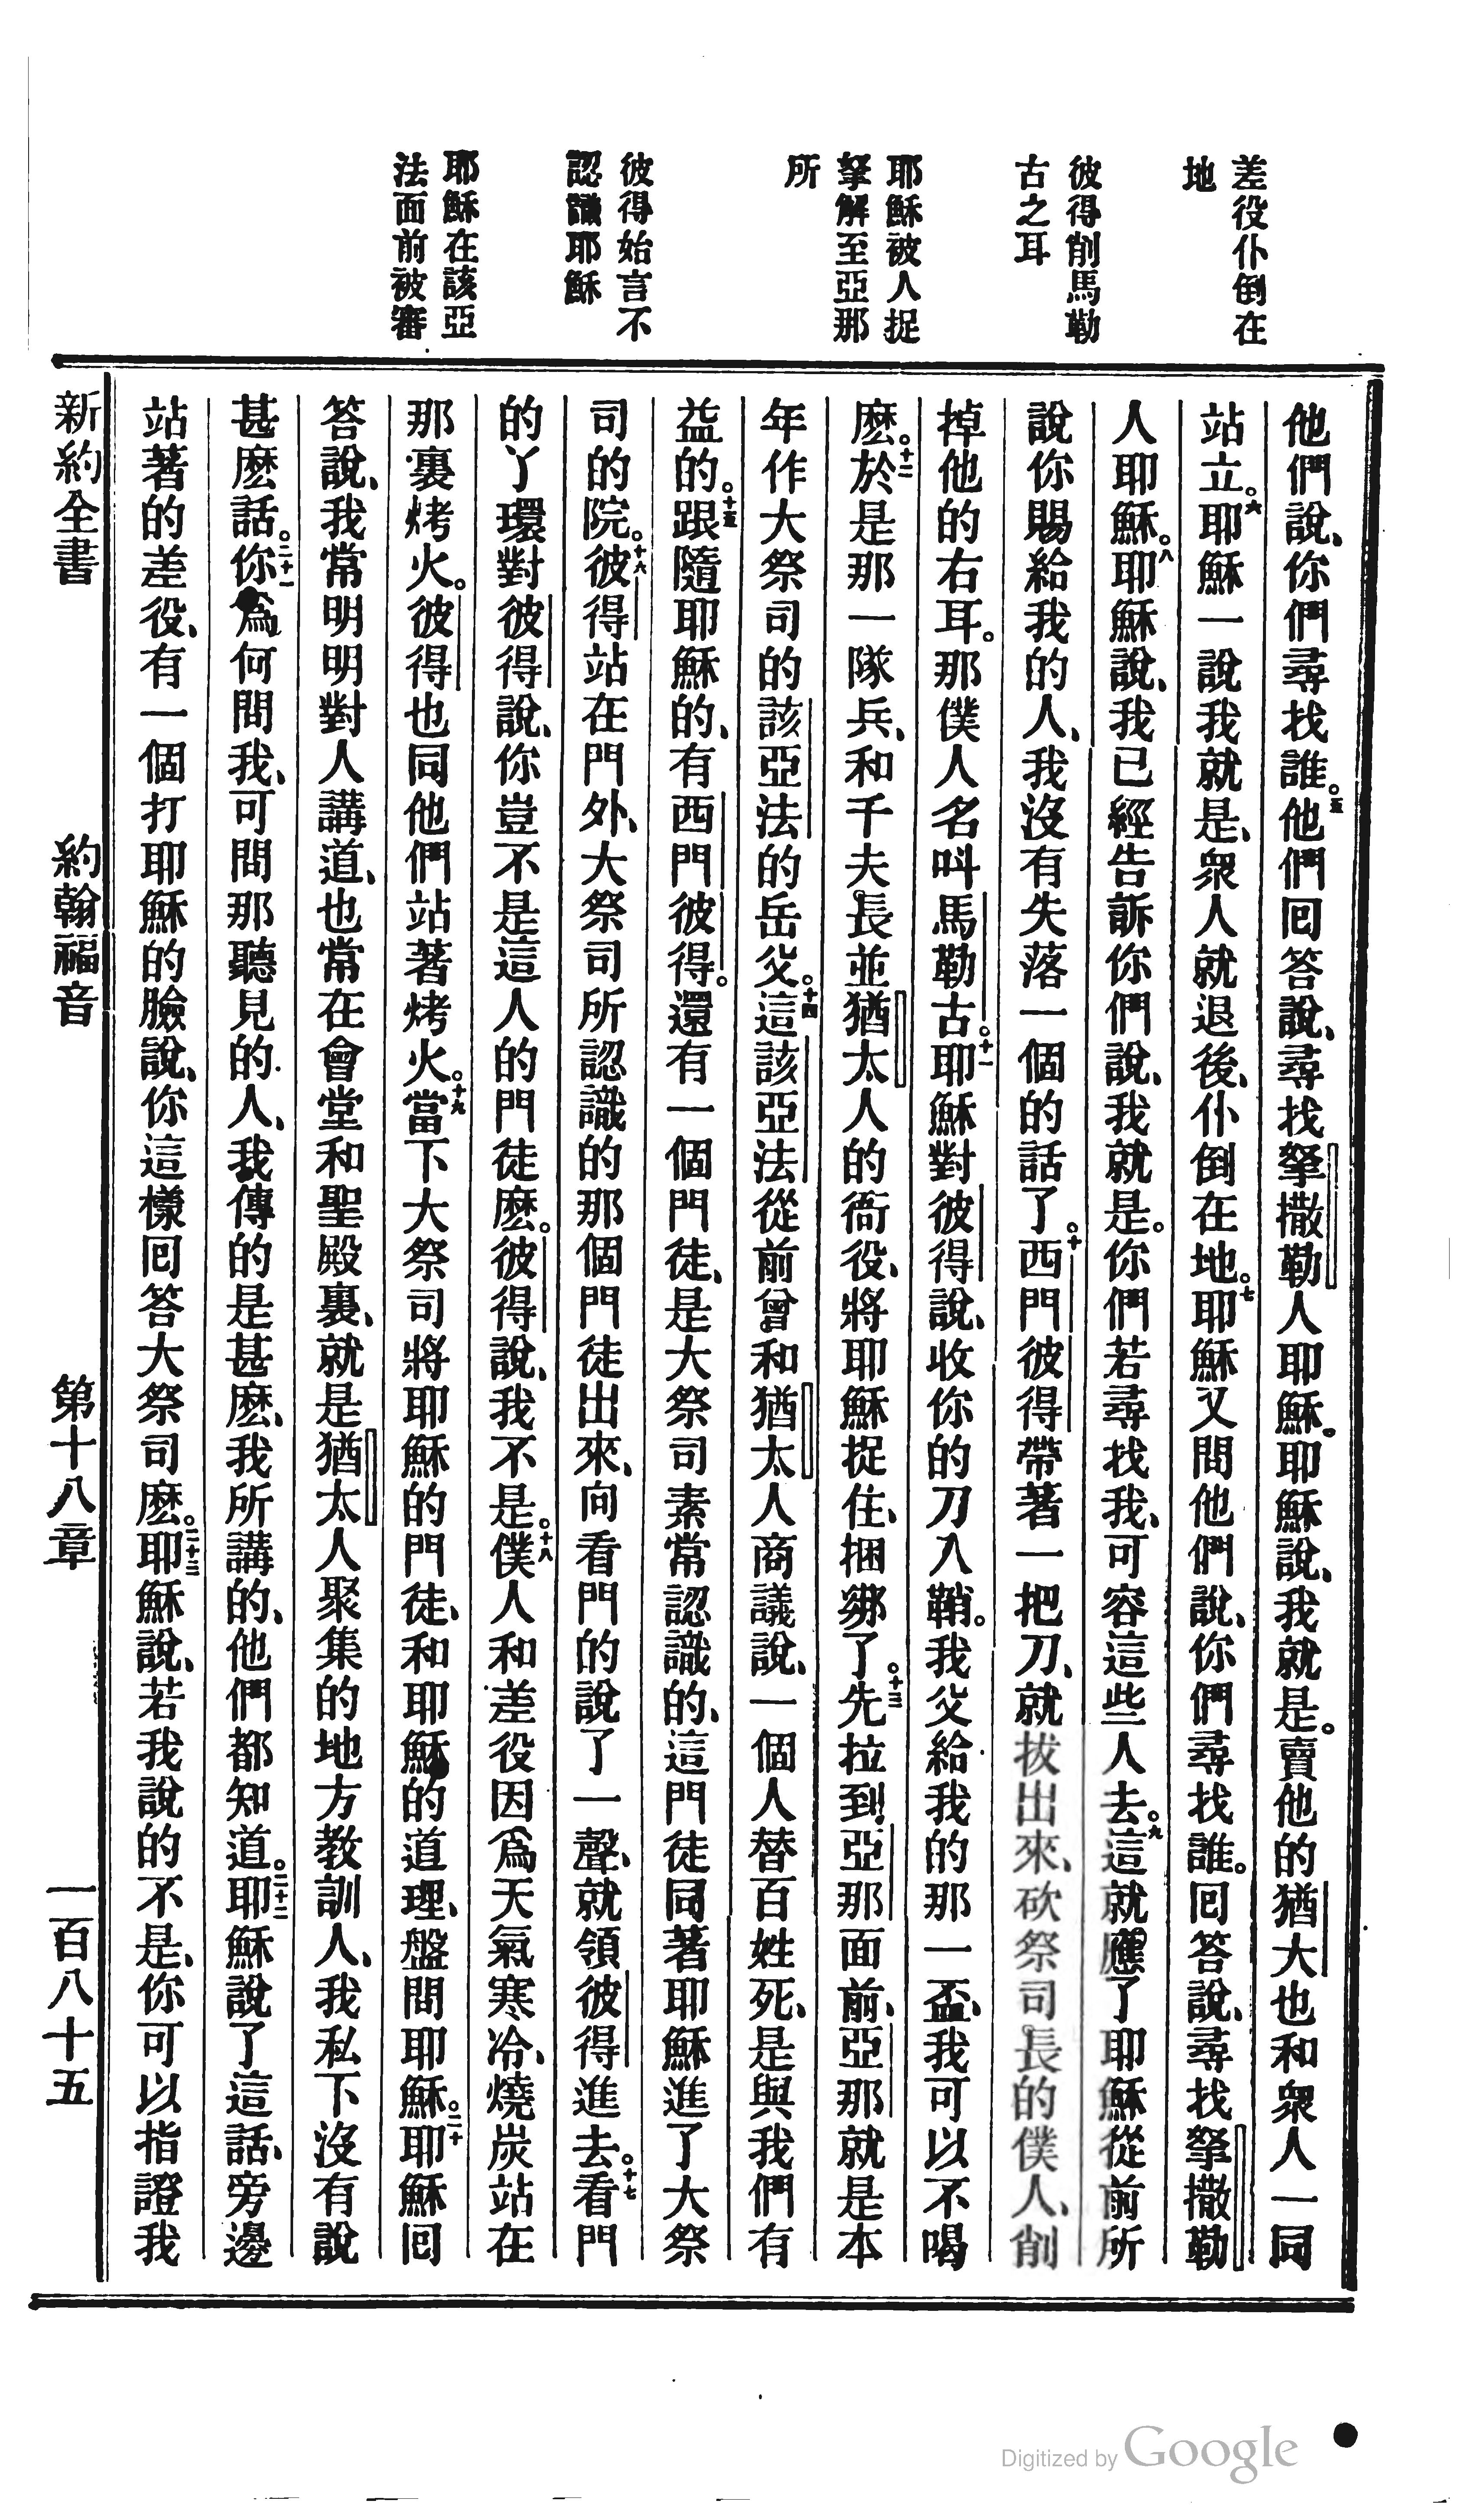 差役仆倒在
地
彼得削馬勒
古之耳
耶穌被人捉
拏解至亞那
所
彼得始言不
認識耶穌
耶穌在該亞
法面前被審
他們說、你們尋找誰。五他們回答說、尋找拏撒勒人耶穌。耶穌說、我就是。賣他的猶大也和衆人一同
站立。六耶穌一說我就是、衆人就退後、仆倒在地。七耶穌又問他們說、你們尋找誰。回答說、尋找拏撒勒
人耶穌。八耶穌說、我已經告訴你們說、我就是。你們若尋找我、可容這些人去。九這就應了耶穌從前所
說你賜給我的人、我沒有失落一個的話了。十西門彼得帶著一把刀、就拔出來、砍祭司長的僕人、削
掉他的右耳。那僕人名呌馬勒古。十一耶穌對彼得說、收你的刀入鞘。我父給我的那一盃、我可以不喝
麽。十二於是那一隊兵、和千夫長並猶太人的衙役、將耶穌捉住、捆綁了。十三先拉到亞那面前、亞那就是本
年作大祭司的該亞法的岳父。十四這該亞法從前曾和猶太人商議說、一個人替百姓死、是與我們有
益的。十五跟隨耶穌的、有西門彼得。還有一個門徒、是大祭司素常認識的、這門徒同著耶穌進了大祭
司的院。十六彼得站在門外、大祭司所認識的那個門徒出來、向看門的說了一聲、就領彼得進去。十七看門
的丫環對彼得說、你豈不是這人的門徒麽。彼得說、我不是。十八僕人和差役因爲天氣寒冷、燒炭站在
那裏烤火。彼得也同他們站著烤火。十九當下大祭司將耶穌的門徒、和耶穌的道理、盤問耶穌。二十耶穌回
答說、我常明明對人講道、也常在會堂和聖殿裏、就是猶太人聚集的地方教訓人、我私下沒有說
甚麽話。二十一你爲何問我、可問那聽見的人、我傳的是甚麽、我所講的、他們都知道。二十二耶穌說了這話、旁邊
站著的差役、有一個打耶穌的臉說、你這樣回答大祭司麽。二十三耶穌說、若我說的不是、你可以指證我
新約全書 約翰福音 第十八章 一百八十五
Digitized by Google